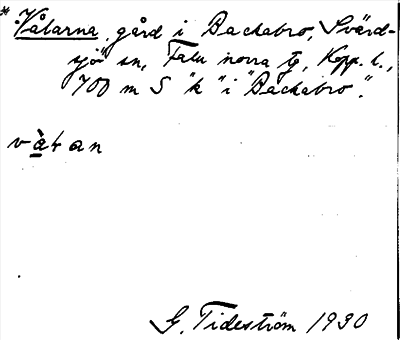 * Vålarna, gård i Backabro, Svärd-
sjö sn, Falu norra tg, Kopp. l.,
700 m S "k" i "Backabro".
våran
G. Tideström 1930